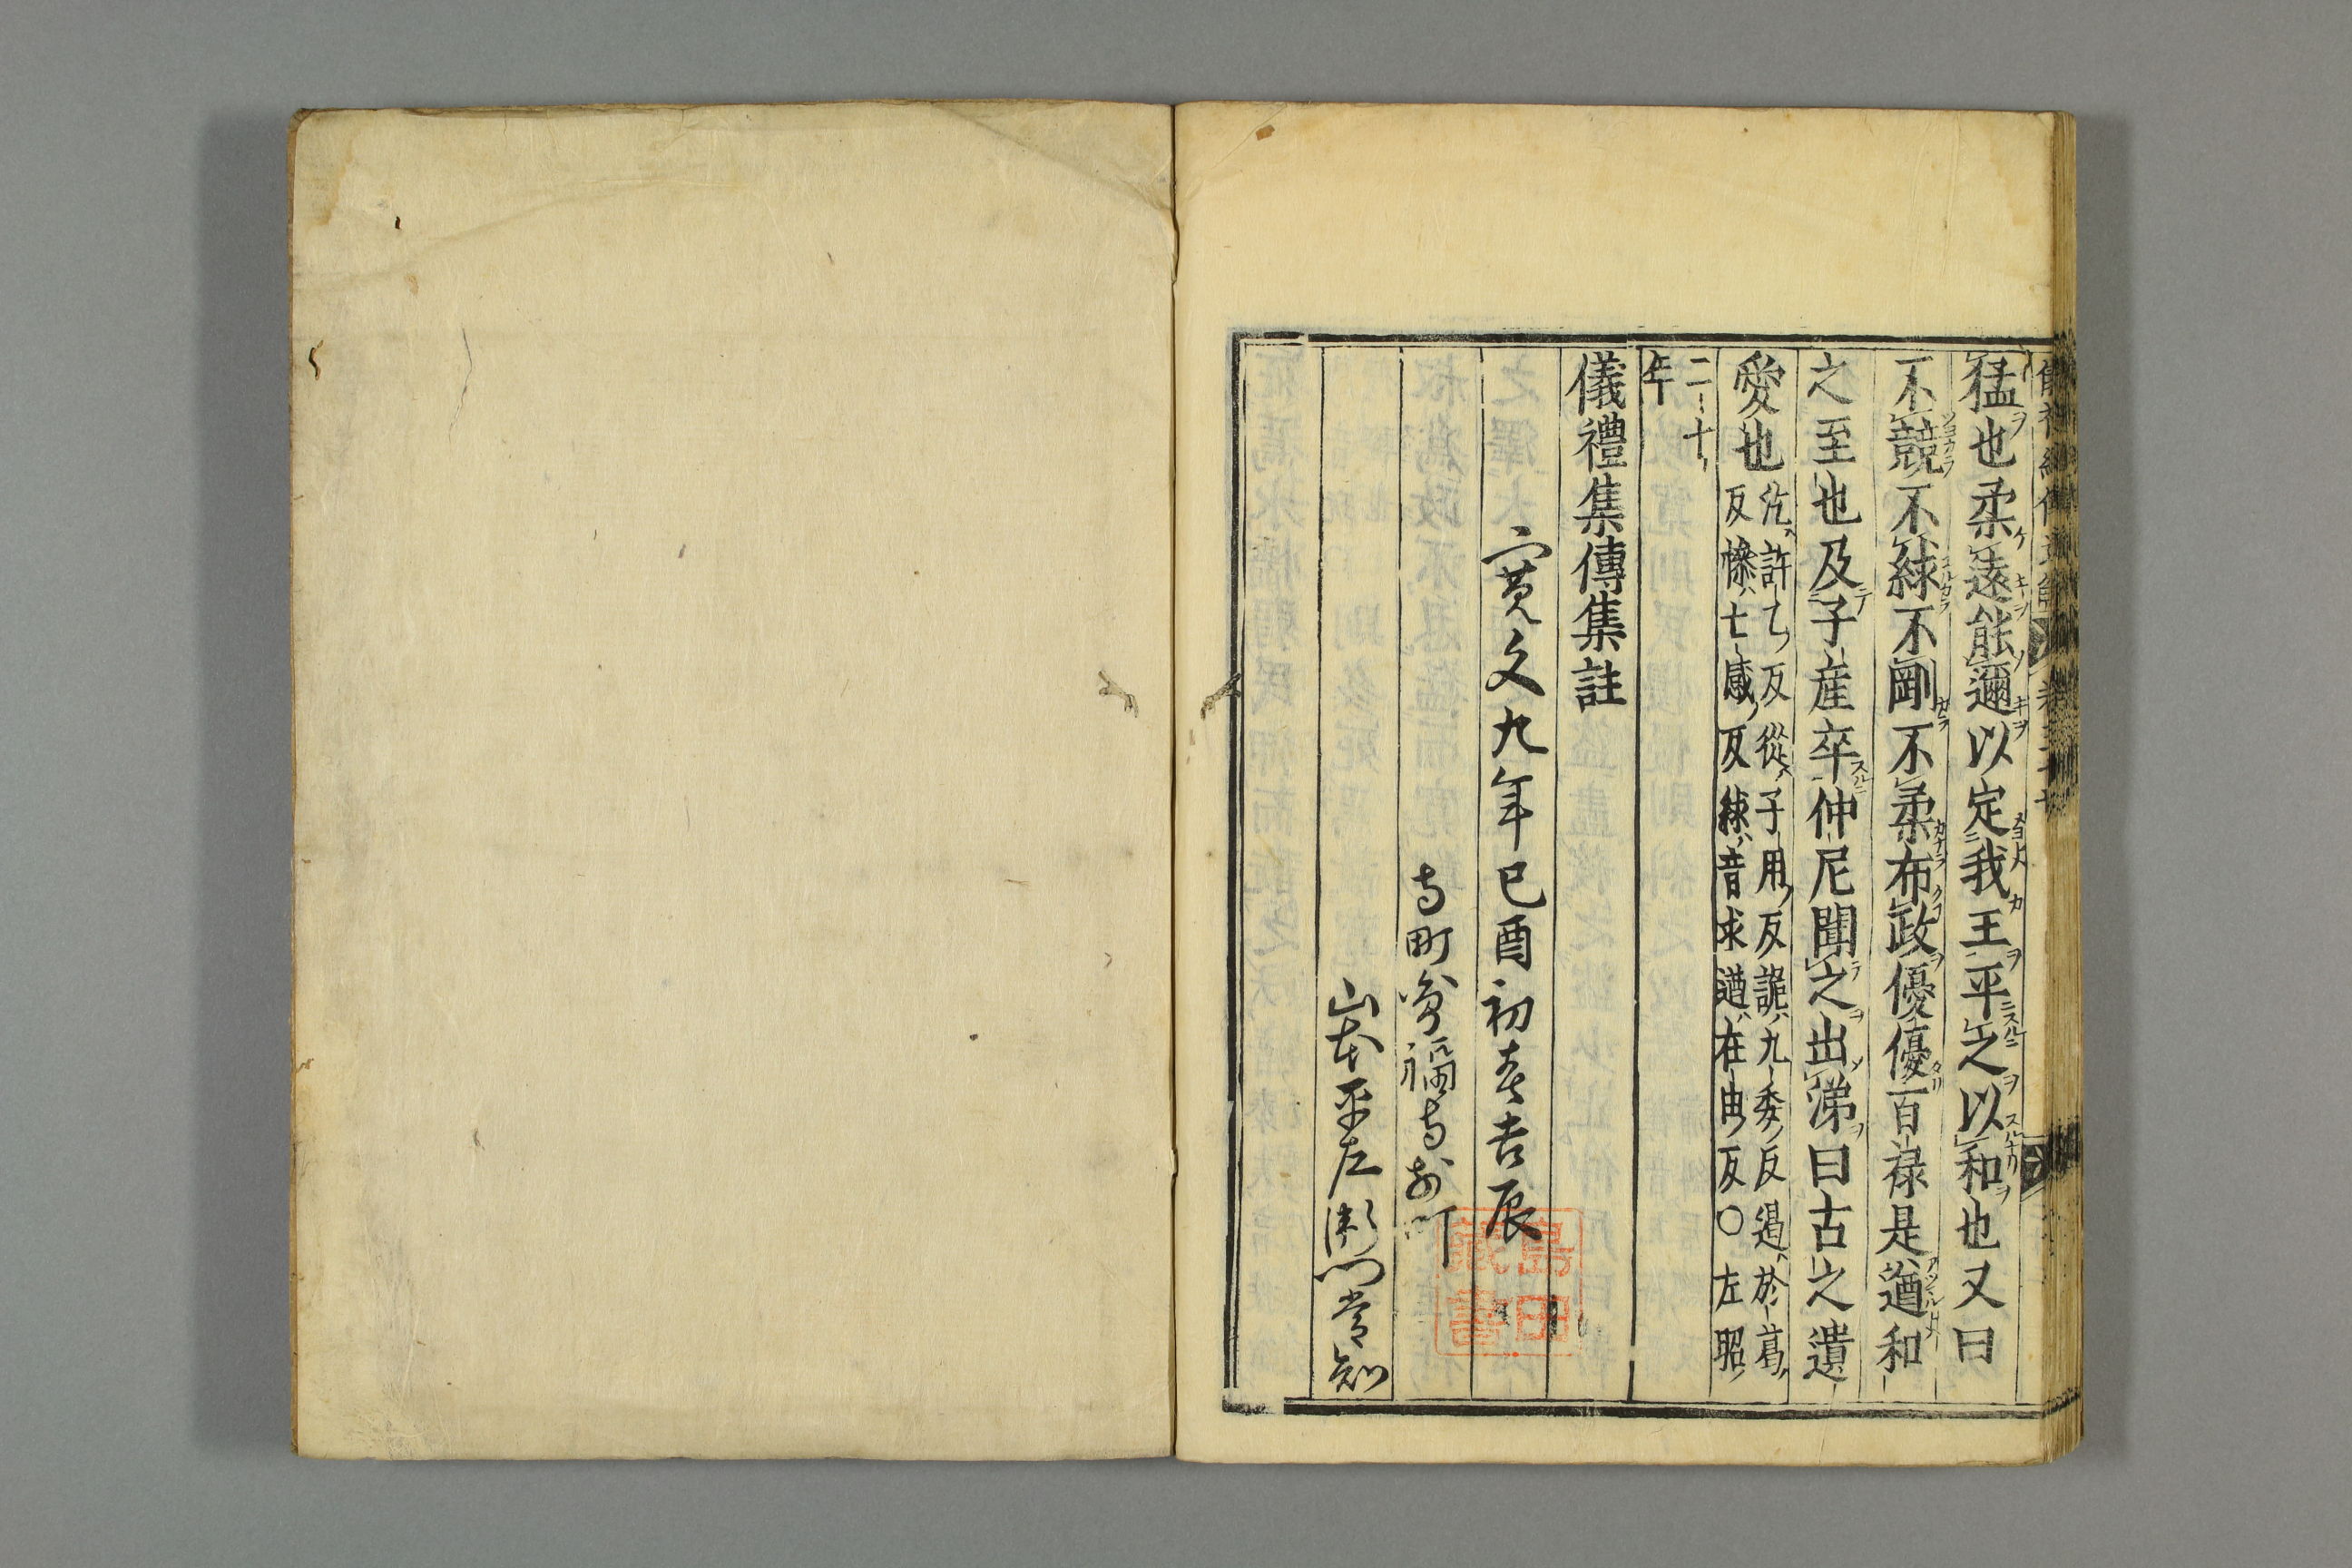 猛也柔遠能邇以定我王平之以和也又曰
不競不絿不剛不柔布政優優百禄是遒和
之至也及子產卒仲尼聞之出涕曰古之遺
愛也
汔許乞反從子用反詭九委反遏於葛
反慘七感反絿音求遒在由反〇左昭
二十
年
儀禮集傳集註
寛文九年己酉初春吉辰
寺町
福寺前町
山本平左衛門常知
島田
藏書